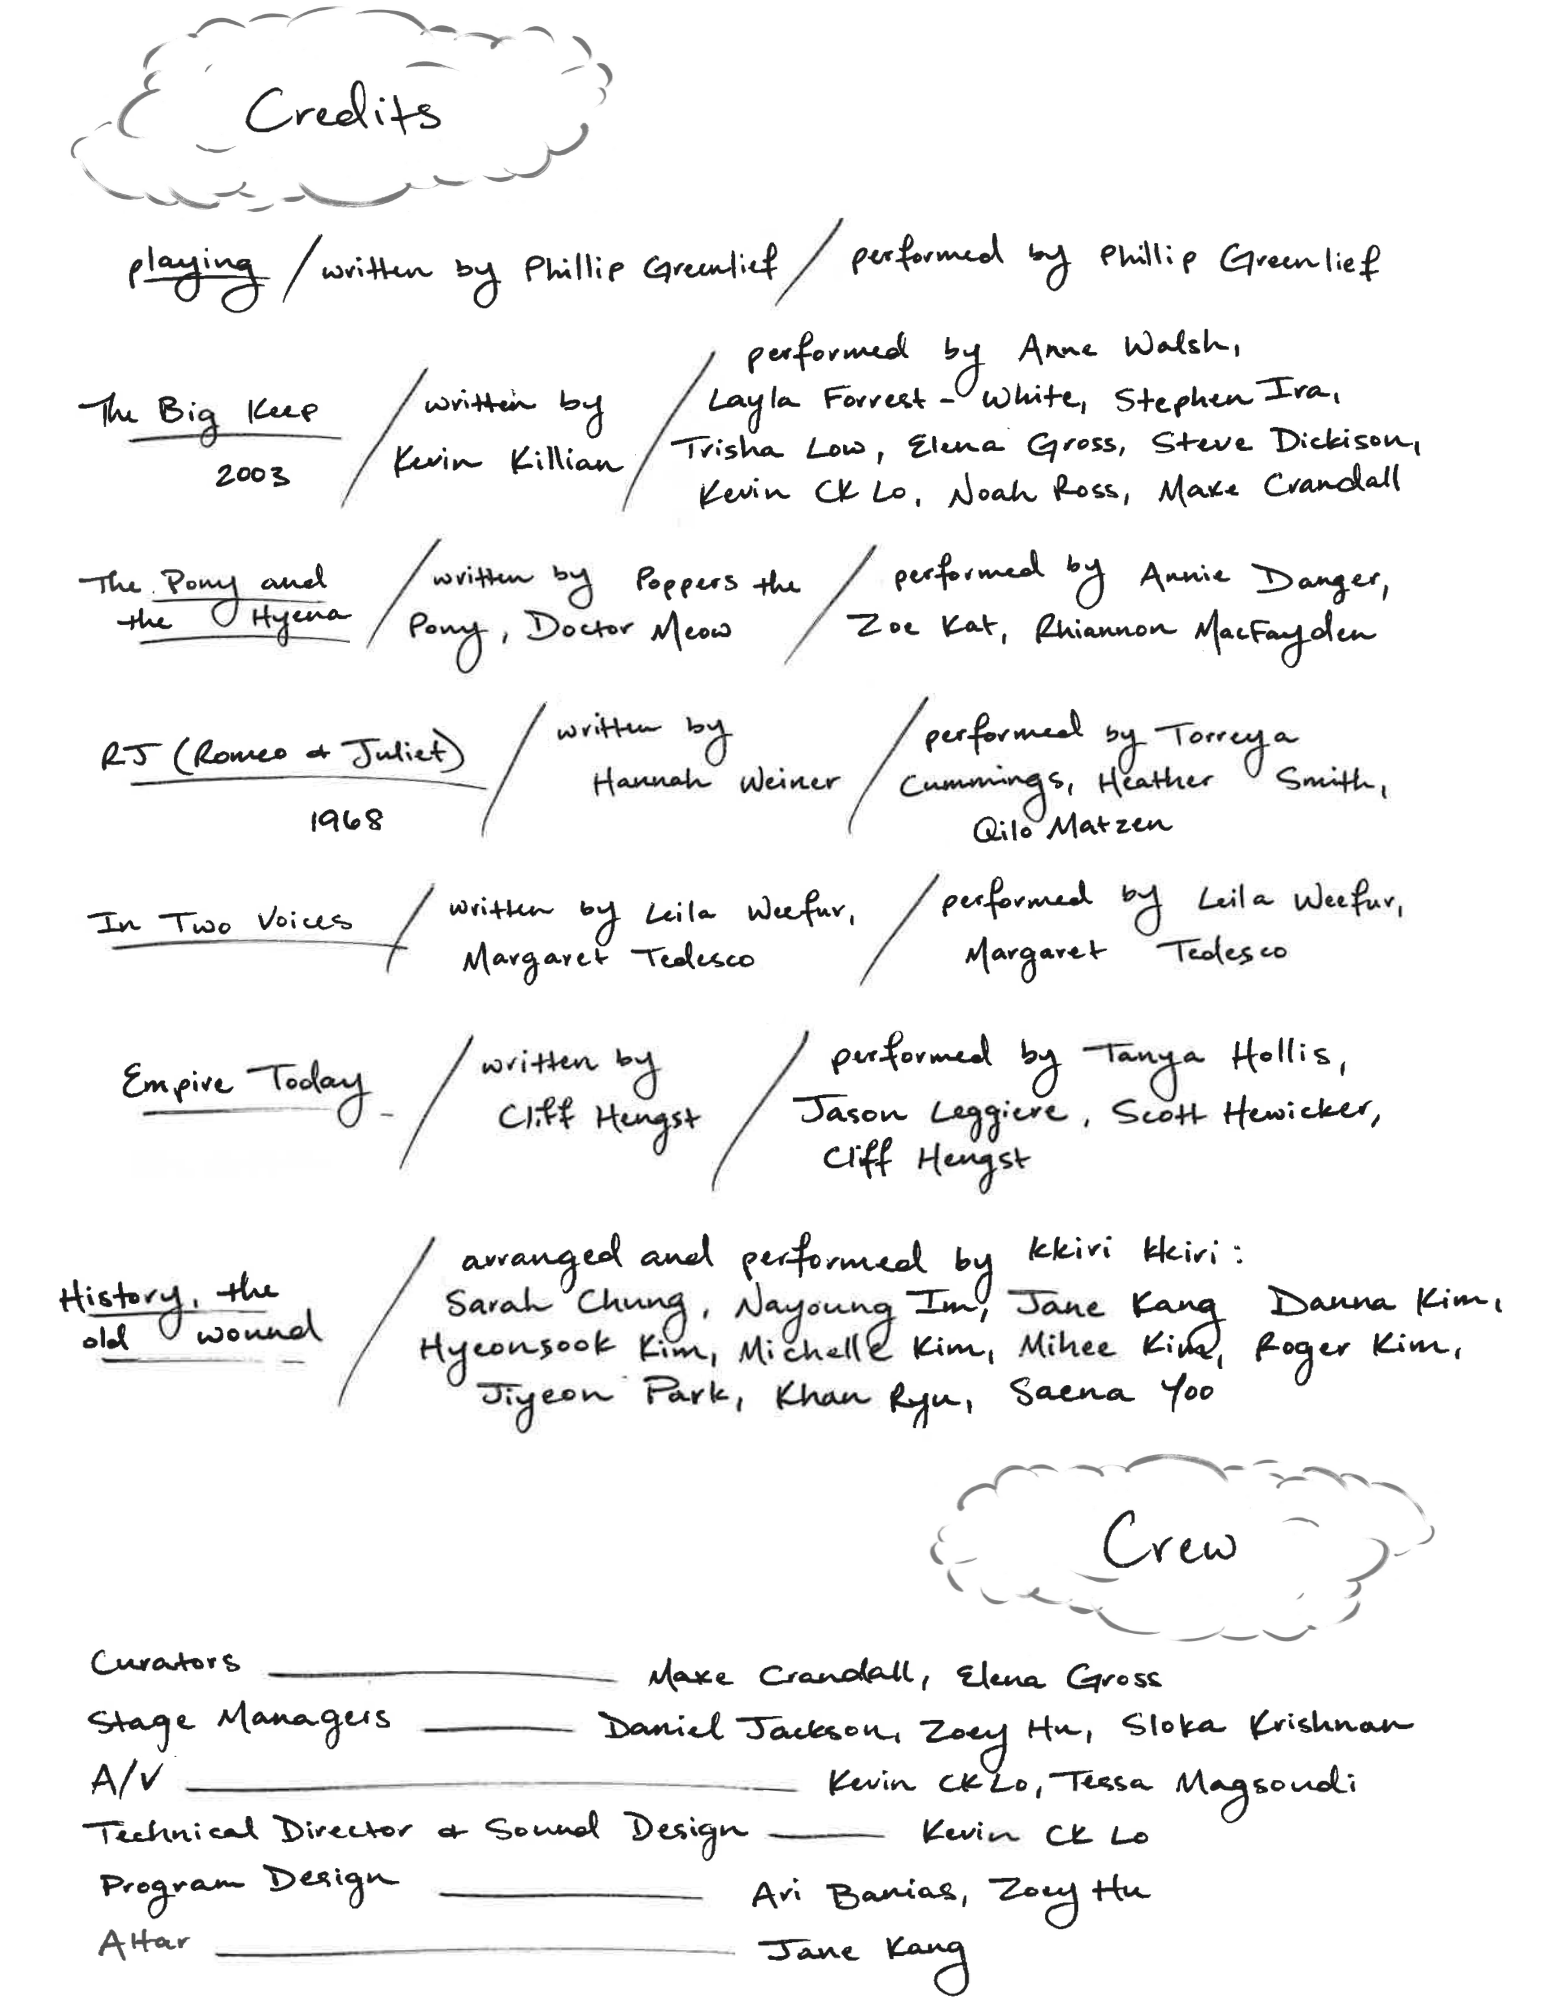 Credits
playing / written by Phillip Greenlief / performed by Phillip Greenlief
The Big Keep
2003
/ written by
Kevin Killian
/ performed by Anne Walsh,
Layla Forrest-White, Stephen Ira,
Trisha Low, Elena Gross, Steve Dickison,
Kevin CK Lo, Noah Ross, Maxe Crandall
The Pony and
the Hyena
/ written by Poppers the
Pony, Doctor Meow
/ performed by Annie Danger,
Zoe Kat, Rhiannon MacFayden
RJ (Romeo & Juliet)
1968
/ written by
Hannah Weiner
/ performed by Torreya
Cummings, Heather Smith,
Qilo Matzen
In Two Voices
/ written by Leila Weefur,
Margaret Tedesco
/ performed by Leila Weefur,
Margaret Tedesco
Empire Today
/ written by
Cliff Hengst
/ performed by Tanya Hollis,
Jason Leggiere, Scott Hewicker,
Cliff Hengst
History, the
old wound
/ arranged and performed by kkiri kkiri:
Sarah Chung, Nayoung Im, Jane Kang Danna Kim,
Hyeonsook Kim, Michelle Kim, Mihee Kim, Roger Kim,
Jiyeon Park, Khan Ryu, Saena Yoo
Crew
Curators — Maxe Crandall, Elena Gross
Stage Managers — Daniel Jackson, Zoey Hu, Sloka Krishnan
A/V — Kevin CK Lo, Tessa Magsoudi
Technical Director & Sound Design — Kevin CK Lo
Program Design — Ari Banias, Zoey Hu
Altar — Jane Kang